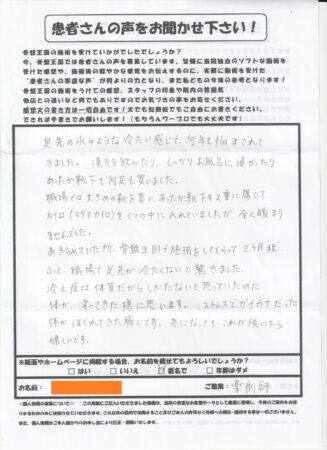 患者さんの声をお聞かせ下さい！
骨盤王国の施術を受けていかがでしたでしょうか？
今、骨盤王国では患者さんの声を募集しています。皆様に当院独自のソフトな施術を
受けた感想や、施術後の軽やかな感覚をお伝えするのに、実際に施術を受けた
"患者さんの率直な声" が何よりの力となり、また私どもの今後の参考となります！
骨盤王国の施術をうけての感想、スタッフの印象や院内の雰囲気
他店との違いなど何でもありですのでお気づきの事をお寄せください。
感想文の書き方は一切自由です！文でも対談形式でもご自由にお書きください。
できれば手書きでお願いします！（もちろんワープロでも大丈夫です）
足先の氷のような冷たい感じで、何年も悩まされて
きました。漢方を飲んだり、しっかりお風呂に浸かったり
あったか靴下も何足も買いました。
職場では大きめの靴を買い、あったか靴下を2重に履いて
カイロ（マグマカイロ）をくつの中に入れていましたが、全く暖まり
ませんでした。
あきらめていた所、骨盤王国で施術をしてもらって2ヶ月程、
ふと、職場で足先が冷たくないと驚きました。
冷え症は体質だからしかたないと思っていたのに
体が変ってきた様に思います。ストレスでガチガチだった
体がほぐれてきた感じです。冬になっても これが続いたら
嬉しいです。
※紙面やホームページに掲載する場合、お名前を載せてもよろしいでしょうか？
□はい □いいえ ☑匿名で □年齢はダメ
お名前： ご職業：薬剤師